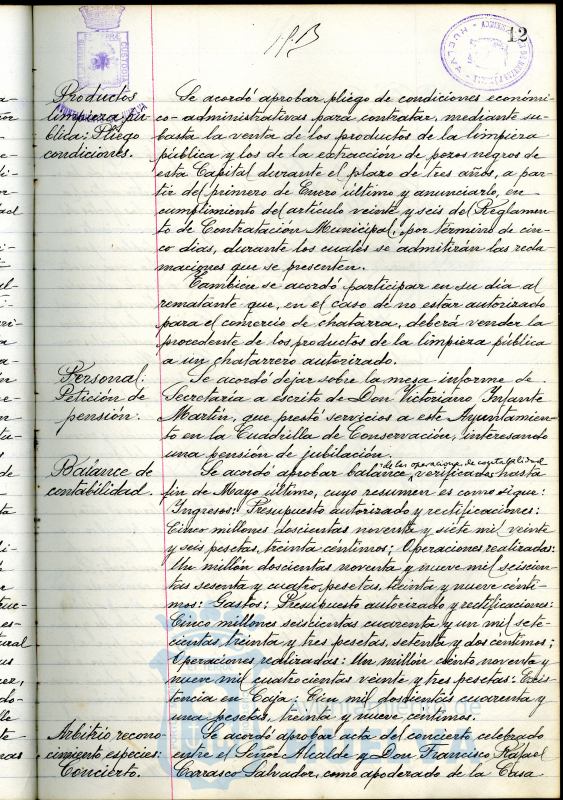 12
Productos
limpieza pú-
blica: Pliego
condiciones.
Se acordó aprobar pliego de condiciones económi-
co-administrativas para contratar, mediante su-
basta la venta de los productos de la limpieza
pública y los de la extracción de pozos negros de
esta Capital durante el plazo de tres años, a par-
tir del primero de Enero último y anunciarlo, en
cumplimiento del artículo veinte y seis del Reglamen-
to de Contratación Municipal, por término de cin-
co días, durante los cuales se admitirán las recla-
maciones que se presenten.
También se acordó participar en su día al
rematante que, en el caso de no estar autorizado
para el comercio de chatarra, deberá vender la
procedente de los productos de la limpieza pública
a un chatarrero autorizado.
Personal.
Petición de
pensión.
Se acordó dejar sobre la mesa informe de
Secretaria a escrito de Don Victoriano Infante
Martín, que prestó servicios a este Ayuntamien-
to en la Cuadrilla de Conservación, interesando
una pensión de jubilación.
Balance de
contabilidad.
de las operaciones de contabilidad
Se acordó aprobar balance verificadas hasta
fin de Mayo último, cuyo resumen es como sigue:
Ingresos: Presupuesto autorizado y rectificaciones:
Cinco millones doscientas noventa y siete mil veinte
y seis pesetas, treinta céntimos; Operaciones realizadas:
Un millón doscientas noventa y nueve mil seiscien-
tas sesenta y cuatro pesetas, treinta y nueve cénti-
mos: Gastos: Presupuesto autorizado y rectificaciones:
Cinco millones seiscientas cuarenta y un mil sete-
cientas treinta y tres pesetas, setenta y dos céntimos;
Operaciones realizadas: Un millón ciento noventa y
nueve mil cuatrocientas veinte y tres pesetas: Exis-
tencia en Caja: Cien mil doscientas cuarenta y
una pesetas, treinta y nueve céntimos.
Arbitrio recono-
cimiento especies:
Concierto.
Se acordó aprobar acta del concierto celebrado
entre el Señor Alcalde y Don Francisco Rafael
Carrasco Salvador, como apoderado de la Casa
Ayuntamiento de
HUELVA